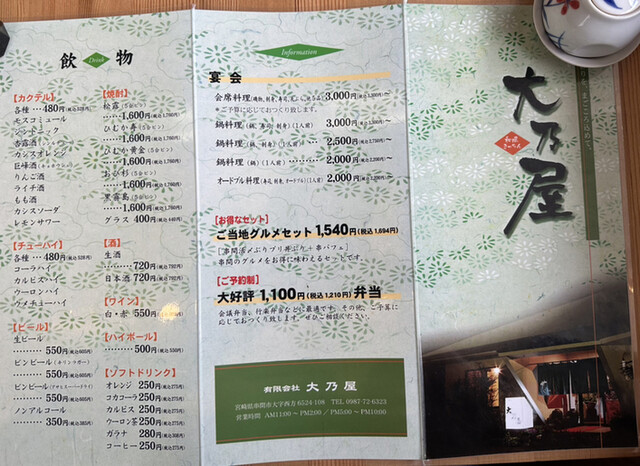 飲物
Drink
【カクテル】
各種 … 480円(税込528円)
モスコミュール
ジントニック
杏露酒
カシスオレンジ
巨峰酒
りんご酒
ライチ酒
もも酒
カシスソーダ
レモンサワー
【チューハイ】
各種 …… 480円(税込528円)
コーラハイ
カルピスハイ
ウーロンハイ
ウメチューハイ
【ビール】
生ビール
………… 550円(税込605円)
ビンビール
………… 550円(税込605円)
ビンビール
………… 550円(税込605円)
ノンアルコール
………… 350円(税込385円)
【焼酎】
松露(5合ビン)
… 1,600円(税込1,760円)
ひむか寿(5合ビン)
… 1,600円(税込1,760円)
ひむか黄金(5合ビン)
… 1,600円(税込1,760円)
おび杉(5合ビン)
… 1,600円(税込1,760円)
黒霧島(5合ビン)
… 1,600円(税込1,760円)
グラス 400円(税込440円)
【酒】
生酒
……… 720円(税込792円)
日本酒 720円(税込792円)
【ワイン】
白・赤 550円
【ハイボール】
……… 500円(税込550円)
【ソフトドリンク】
オレンジ 250円(税込275円)
コカコーラ 250円(税込275円)
カルピス 250円(税込275円)
ウーロン茶 250円(税込275円)
ガラナ 280円(税込308円)
コーヒー 250円(税込275円)
Information
宴会
会席料理 3,000円(税込3,300円)～
～ご予算に応じておつくり致します。
鍋料理(鍋、寿司、刺身)(1人前) 3,000円(税込3,300円)～
鍋料理(鍋、刺身)(1人前) …… 2,500円(税込2,750円)～
鍋料理(鍋)(1人前) ………… 2,000円(税込2,200円)～
オードブル料理(寿司、刺身、オードブル)(1人前) 2,000円(税込2,200円)～
【お得なセット】
ご当地グルメセット 1,540円(税込1,694円)
[串間活〆ぶりプリ丼ぶり＋串パフェ]
串間のグルメをお得に味わえるセットです。
【ご予約制】
大好評 1,100円(税込1,210円) 弁当
会議弁当、行楽弁当などに最適です。その他、ご予算に
応じておつくり致します。ぜひご相談ください。
有限会社 大乃屋
宮崎県串間市大字西方6524-108 TEL 0987-72-6323
営業時間 AM11:00～PM2:00／PM5:00～PM10:00
大乃屋